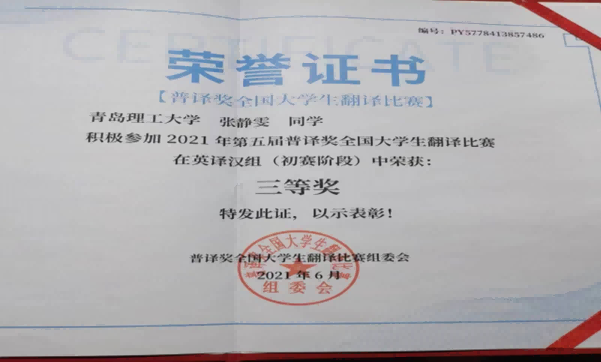 编号：PY5778413857486
CERTIFICATE
荣誉证书
【普译奖全国大学生翻译比赛】
青岛理工大学 张静雯 同学
积极参加 2021 年第五届普译奖全国大学生翻译比赛
在英译汉组（初赛阶段）中荣获：
三等奖
特发此证，以示表彰！
普译奖全国大学生翻译比赛组委会
2021 年 6 月
普译奖全国大学生翻译比赛
组委会